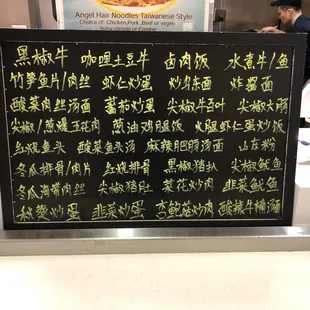 Angel Hair Noodles Taiwanese Style
Choice of: Chicken, Pork, Beef or veges
黑椒牛 咖哩土豆牛 卤肉饭 水煮牛/鱼
竹笋鱼片/肉丝 虾仁炒蛋 炒乌东面 炸酱面
酸菜肉丝汤面 蕃茄炒蛋 尖椒牛百叶 尖椒大肠
尖椒/葱爆五花肉 葱油鸡腿饭 火腿虾仁蛋炒饭
红烧鱼头 酸菜鱼头汤 麻辣肥肠汤面 山东粉
冬瓜排骨/肉片 红烧排骨 黑椒猪扒 尖椒鱿鱼
冬瓜海带肉丝 尖椒猪肚 菜花炒肉 韭菜鱿鱼
秋葵炒蛋 韭菜炒蛋 杏鲍菇炒肉 酸辣牛腩汤